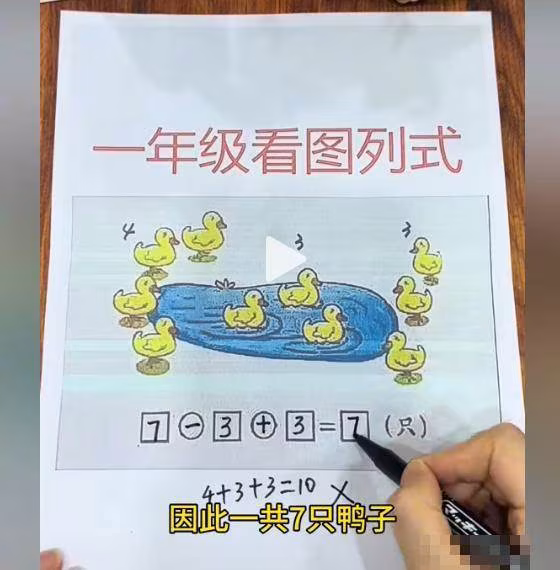 一年级看图列式
4
3
3
7-3+3=7(只)
4+3+3=10 ×
因此一共7只鸭子